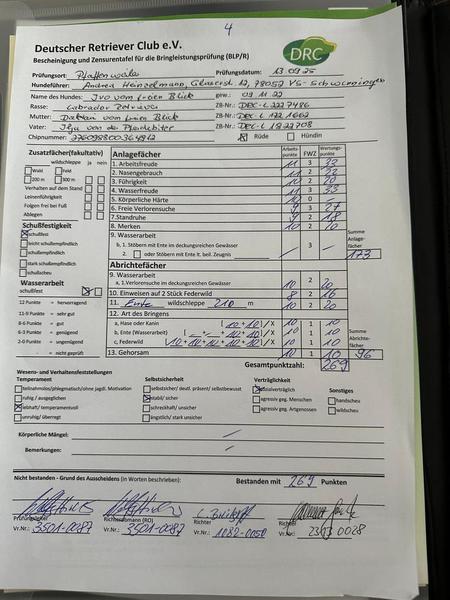 4
Deutscher Retriever Club e.V.
Bescheinigung und Zensurentafel für die Bringleistungsprüfung (BLP/R)
DRC
Prüfungsort: Pfaffenweiler Prüfungsdatum: 13.09.25
Hundeführer: Andrea Heinzelmann, 12, 78052 VS-Schwenningen
Name des Hundes: Ivo vom freien Blick gew.: 09.11.22
Rasse: Labrador Retriever ZB-Nr.: DRC-L 2227486
Mutter: vom freien Blick ZB-Nr.: DRC-L 1221662
Vater: ZB-Nr.: DRC-L 1822708
Chipnummer: Rüde Hündin
Zusatzfächer(fakultativ)
wildschleppe ja nein
Wald Feld
200 m 300 m
Verhalten auf dem Stand
Leinenführigkeit
Folgen frei bei Fuß
Ablegen
Schußfestigkeit
schussfest
leicht schußempfindlich
schußempfindlich
stark schußempfindlich
schußscheu
Wasserarbeit
schußfest
12 Punkte = hervorragend
11-9 Punkte = sehr gut
8-6 Punkte = gut
6-3 Punkte = genügend
2-0 Punkte = ungenügend
- = nicht geprüft
Anlagefächer Arbeits-punkte FWZ Wertungs-punkte
1. Arbeitsfreude 11 3 33
2. Nasengebrauch 11 2 22
3. Führigkeit 10 2 20
4. Wasserfreude 11 3 33
5. Körperliche Härte 10 0
6. Freie Verlorensuche 9 3 27
7. Standruhe 9 2 18
8. Merken 10 2 20
9. Wasserarbeit
b, 1. Stöbern mit Ente im deckungsreichen Gewässer
2. oder Stöbern mit Ente lt. beil. Zeugnis
3
Summe Anlage-fächer
173
Abrichtefächer
9. Wasserarbeit
a, 1.Verlorensuche im deckungsreichen Gewässer 10 2 20
10. Einweisen auf 2 Stück Federwild 8 2 16
11. Ente wildschleppe 210 m 10 2 20
12. Art des Bringens
a, Hase oder Kanin 10 1 10
b, Ente (Wasserarbeit) 10 1 10
c, Federwild 10 1 10
13. Gehorsam 10 1 10
Summe Abrichte-fächer
96
Gesamtpunktzahl: 269
Wesens- und Verhaltensfeststellungen
Temperament
teilnahmslos/phlegmatisch/ohne jagdl. Motivation
ruhig / ausgeglichen
lebhaft/ temperamentvoll
unruhig/ überregt
Selbstsicherheit
selbstsicher/ deutl. präsent/ selbstbewusst
stabil/ sicher
schreckhaft/ unsicher
ängstlich/ stark unsicher
Verträglichkeit
sozialverträglich
agressiv geg. Menschen
agressiv geg. Artgenossen
Sonstiges
handscheu
wildscheu
Körperliche Mängel:
Bemerkungen:
Nicht bestanden - Grund des Ausscheidens (in Worten beschrieben):
Bestanden mit 269 Punkten
Richterobmann (RO)
Richter
Richter
Vr.Nr.: 3501-0087
Vr.Nr.: 3501-0087
Vr.Nr.: 1082-0050
Vr.Nr.: 0028